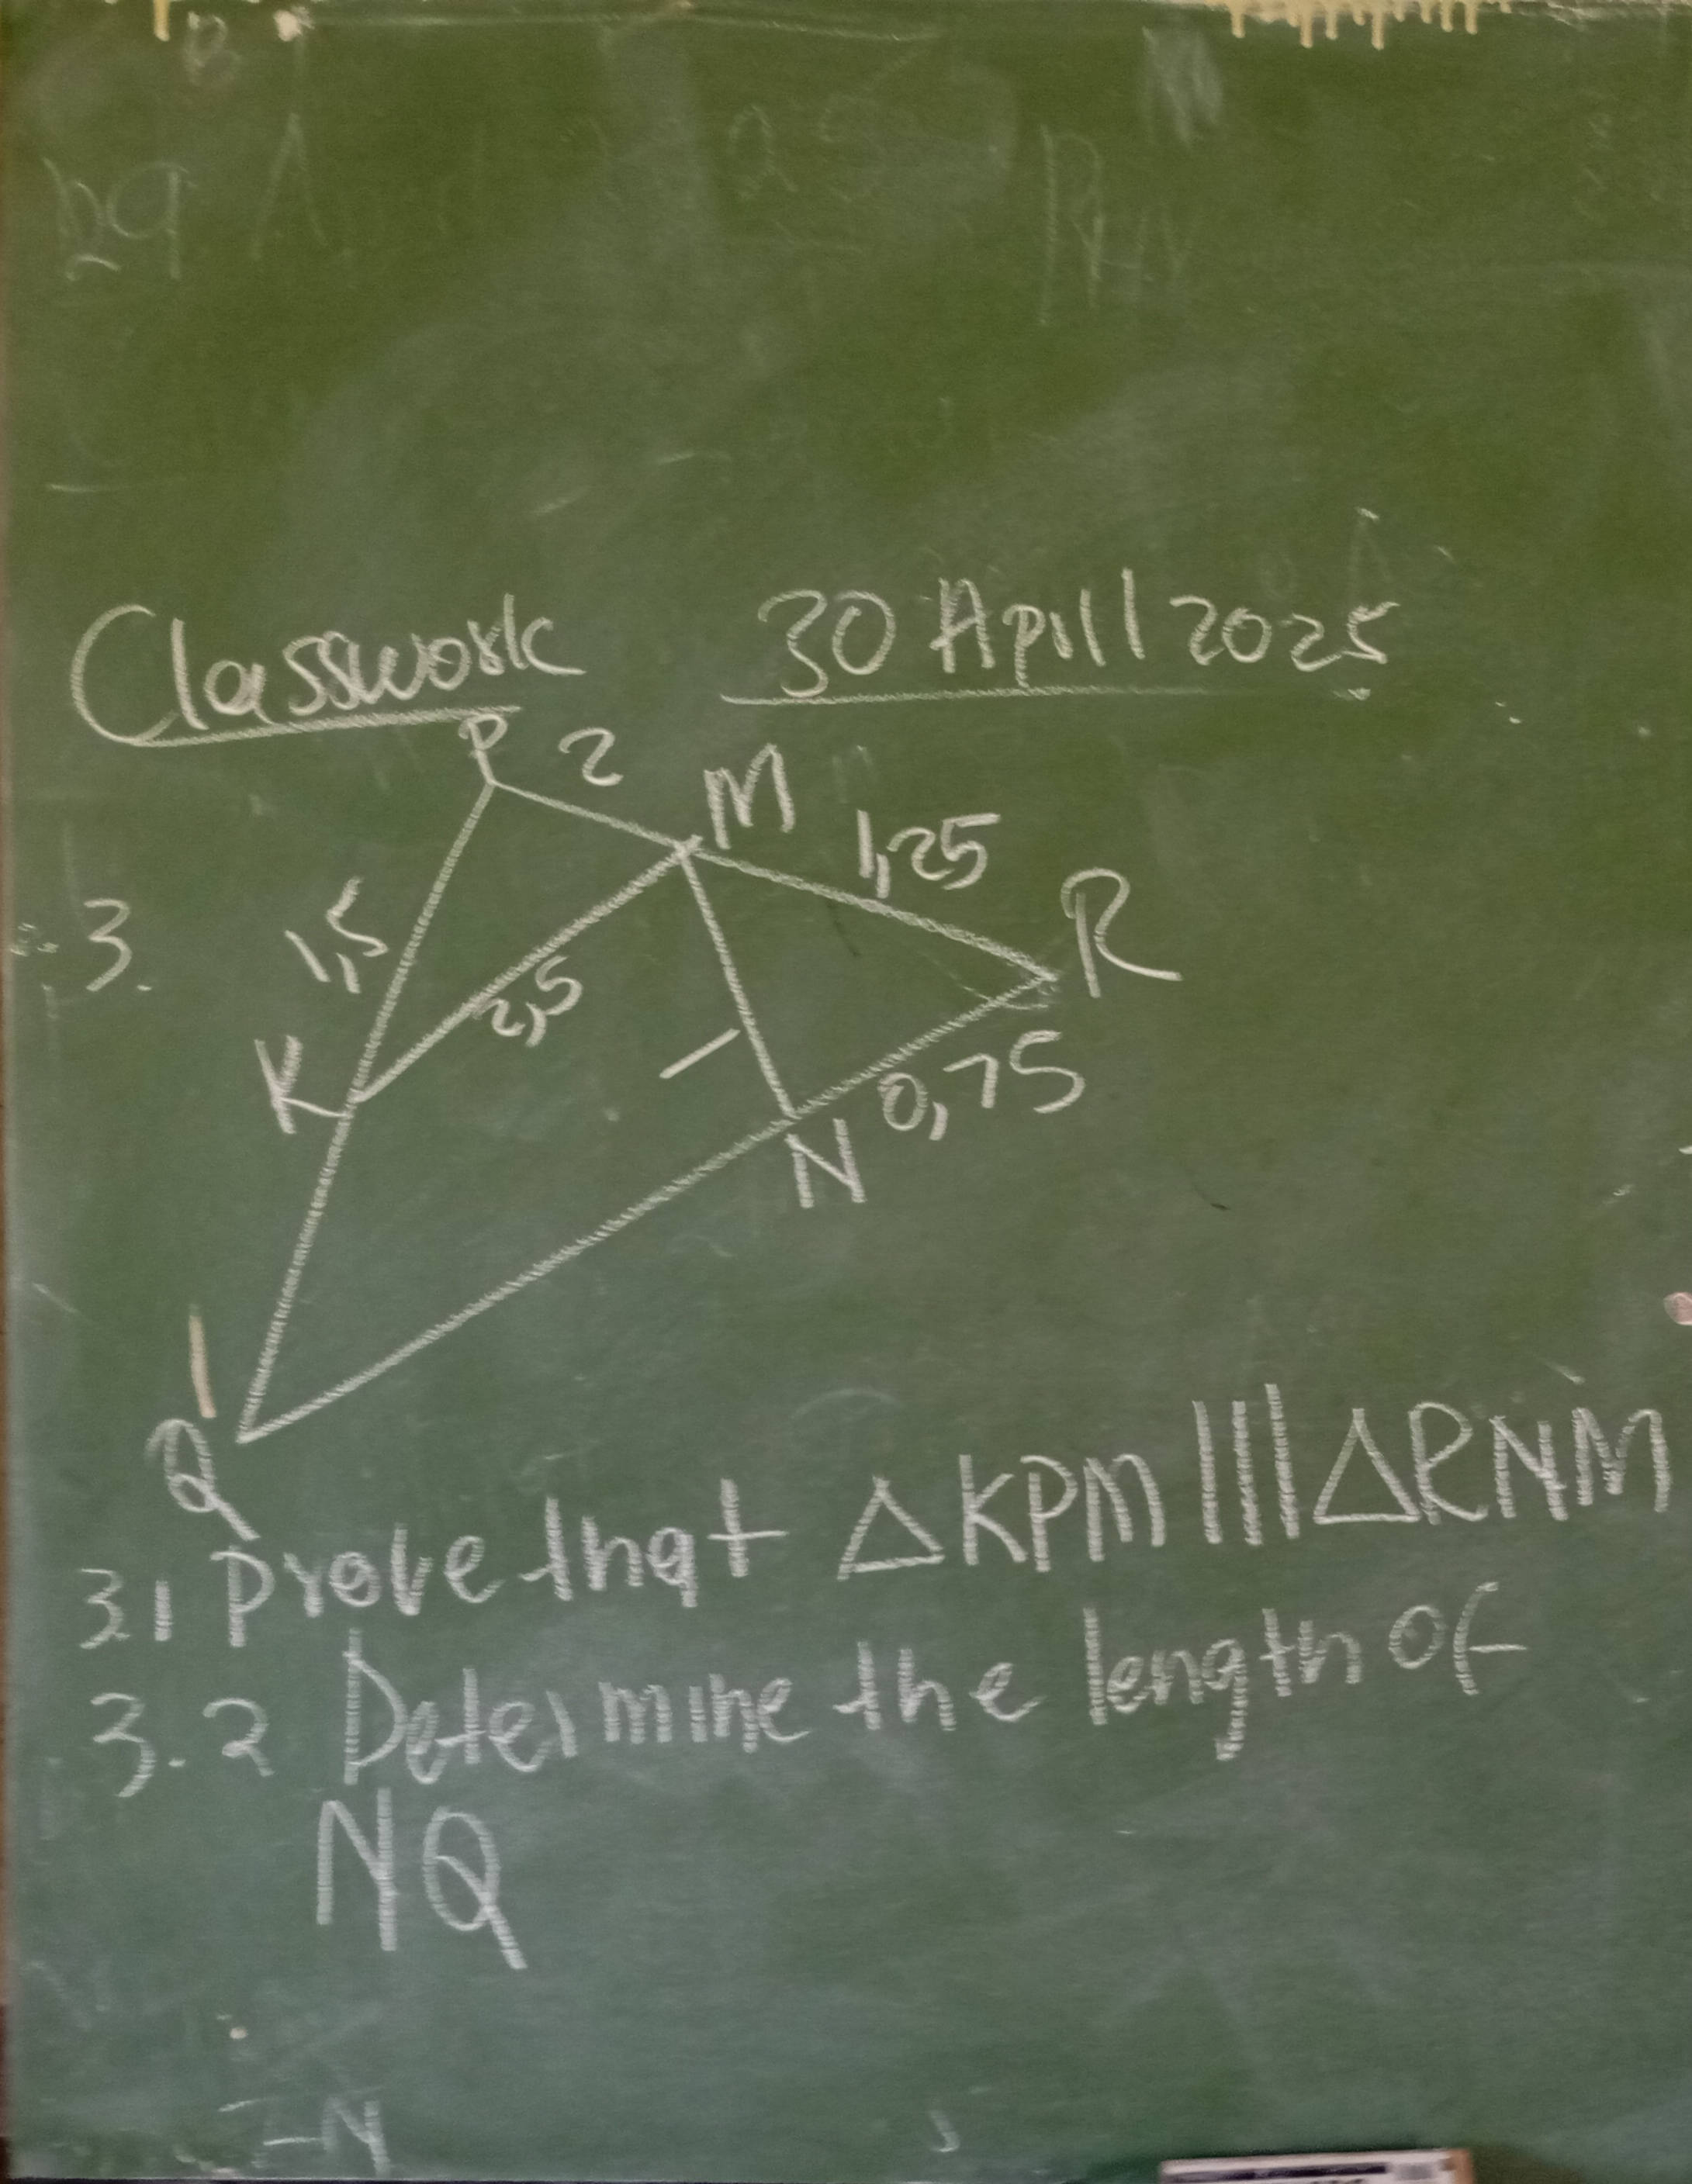 Classwork 30 April 2025
P 2 M
1,25
3. 1,5 R
2,5
K 1 0,75
N
Q
3.1 Prove that ΔKPM ||| ΔRNM
3.2 Determine the length of
NQ